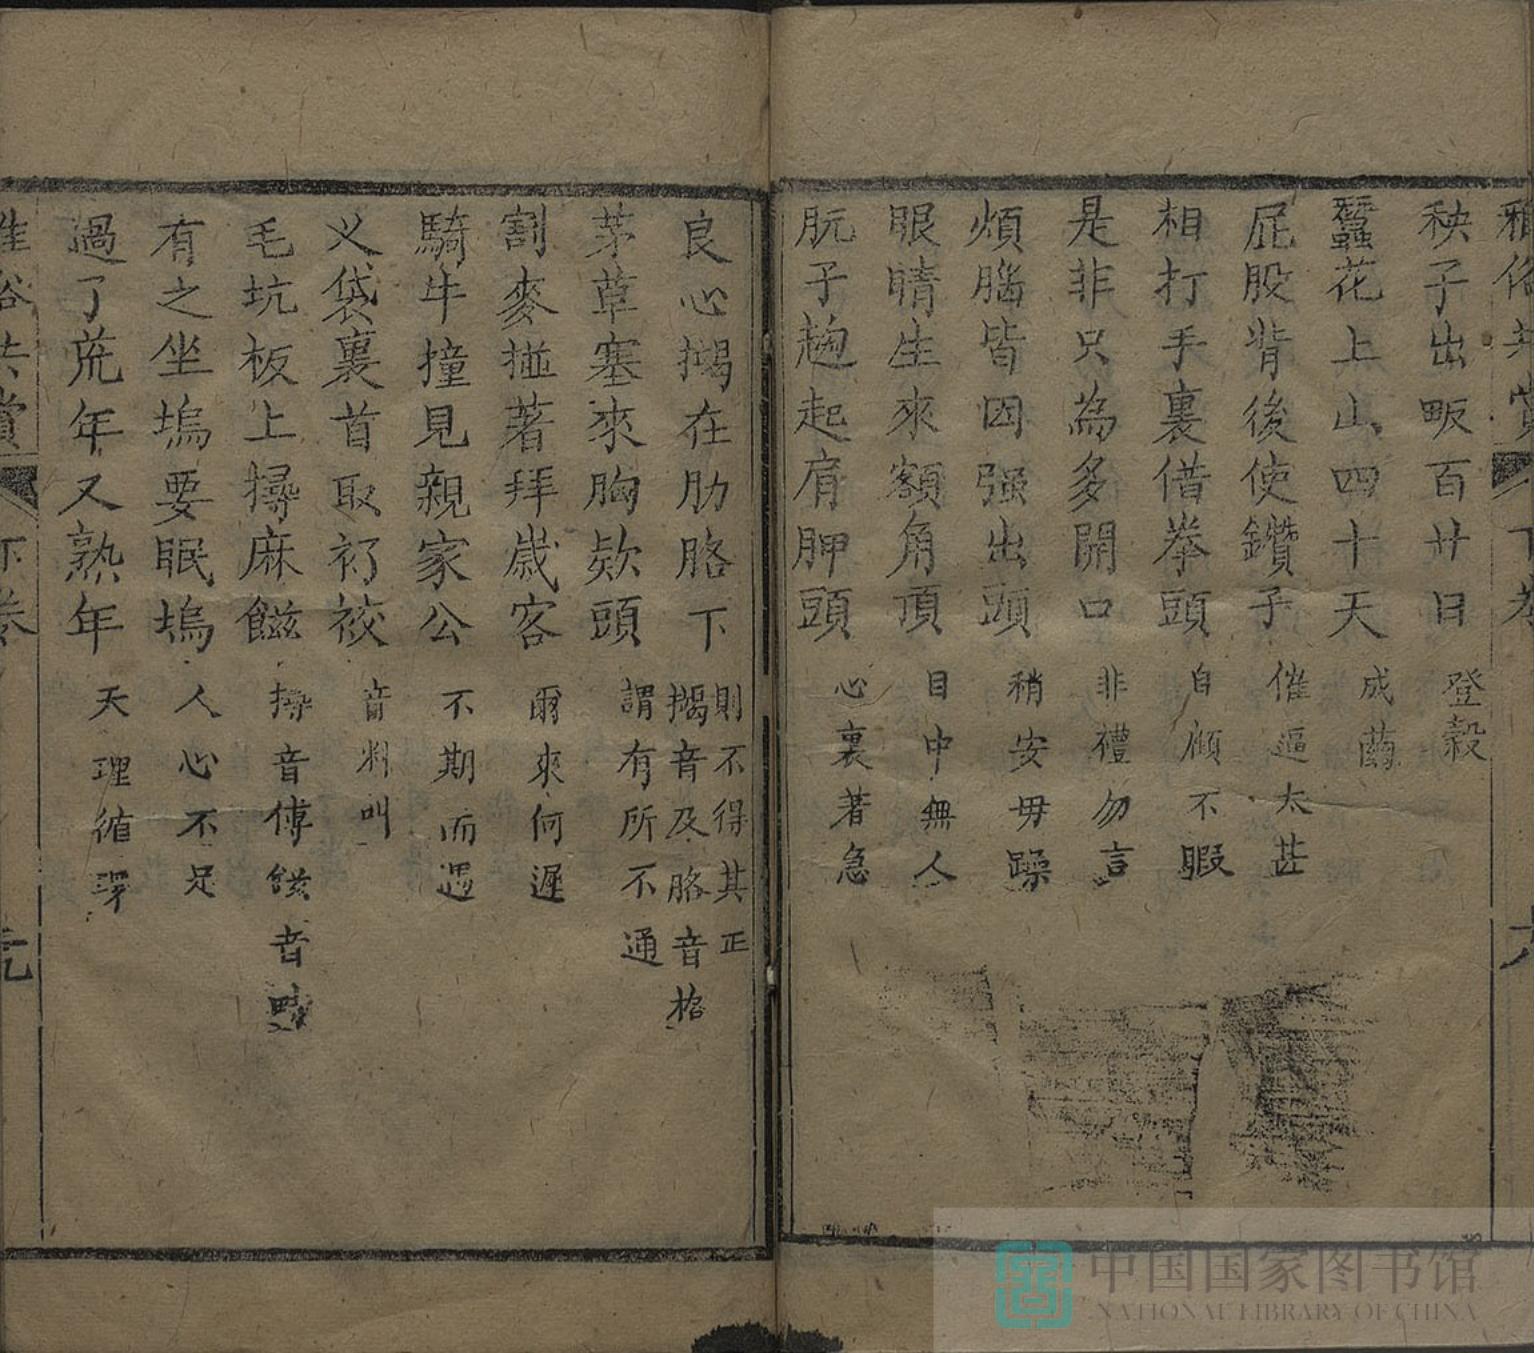 雅俗共賞 下卷
秧子出畈百廿日 登穀
蠶花上山四十天 成繭
屁股背後使鑽子 催逼太甚
相打手裏借拳頭 自顧不暇
是非只為多開口 非禮勿言
煩腦皆因强出頭 稍安毋躁
眼睛生來額角頂 目中無人
朊子趐起肩胛頭 心裏著急
良心揭在肋胳下 則不得其正 揭音及胳音格
茅草塞來胸欬頭 謂有所不通
割麥搕著拜歲客 爾來何遲
騎牛撞見親家公 不期而遇
叉袋裏首取衧袯 音料叫
毛坑板上撏麻餈 撏音傳餈音
有之坐塢要眠塢 人心不足
過了荒年又熟年 天理循環
雅俗共賞 下卷
中国国家图书馆
NATIONAL LIBRARY OF CHINA